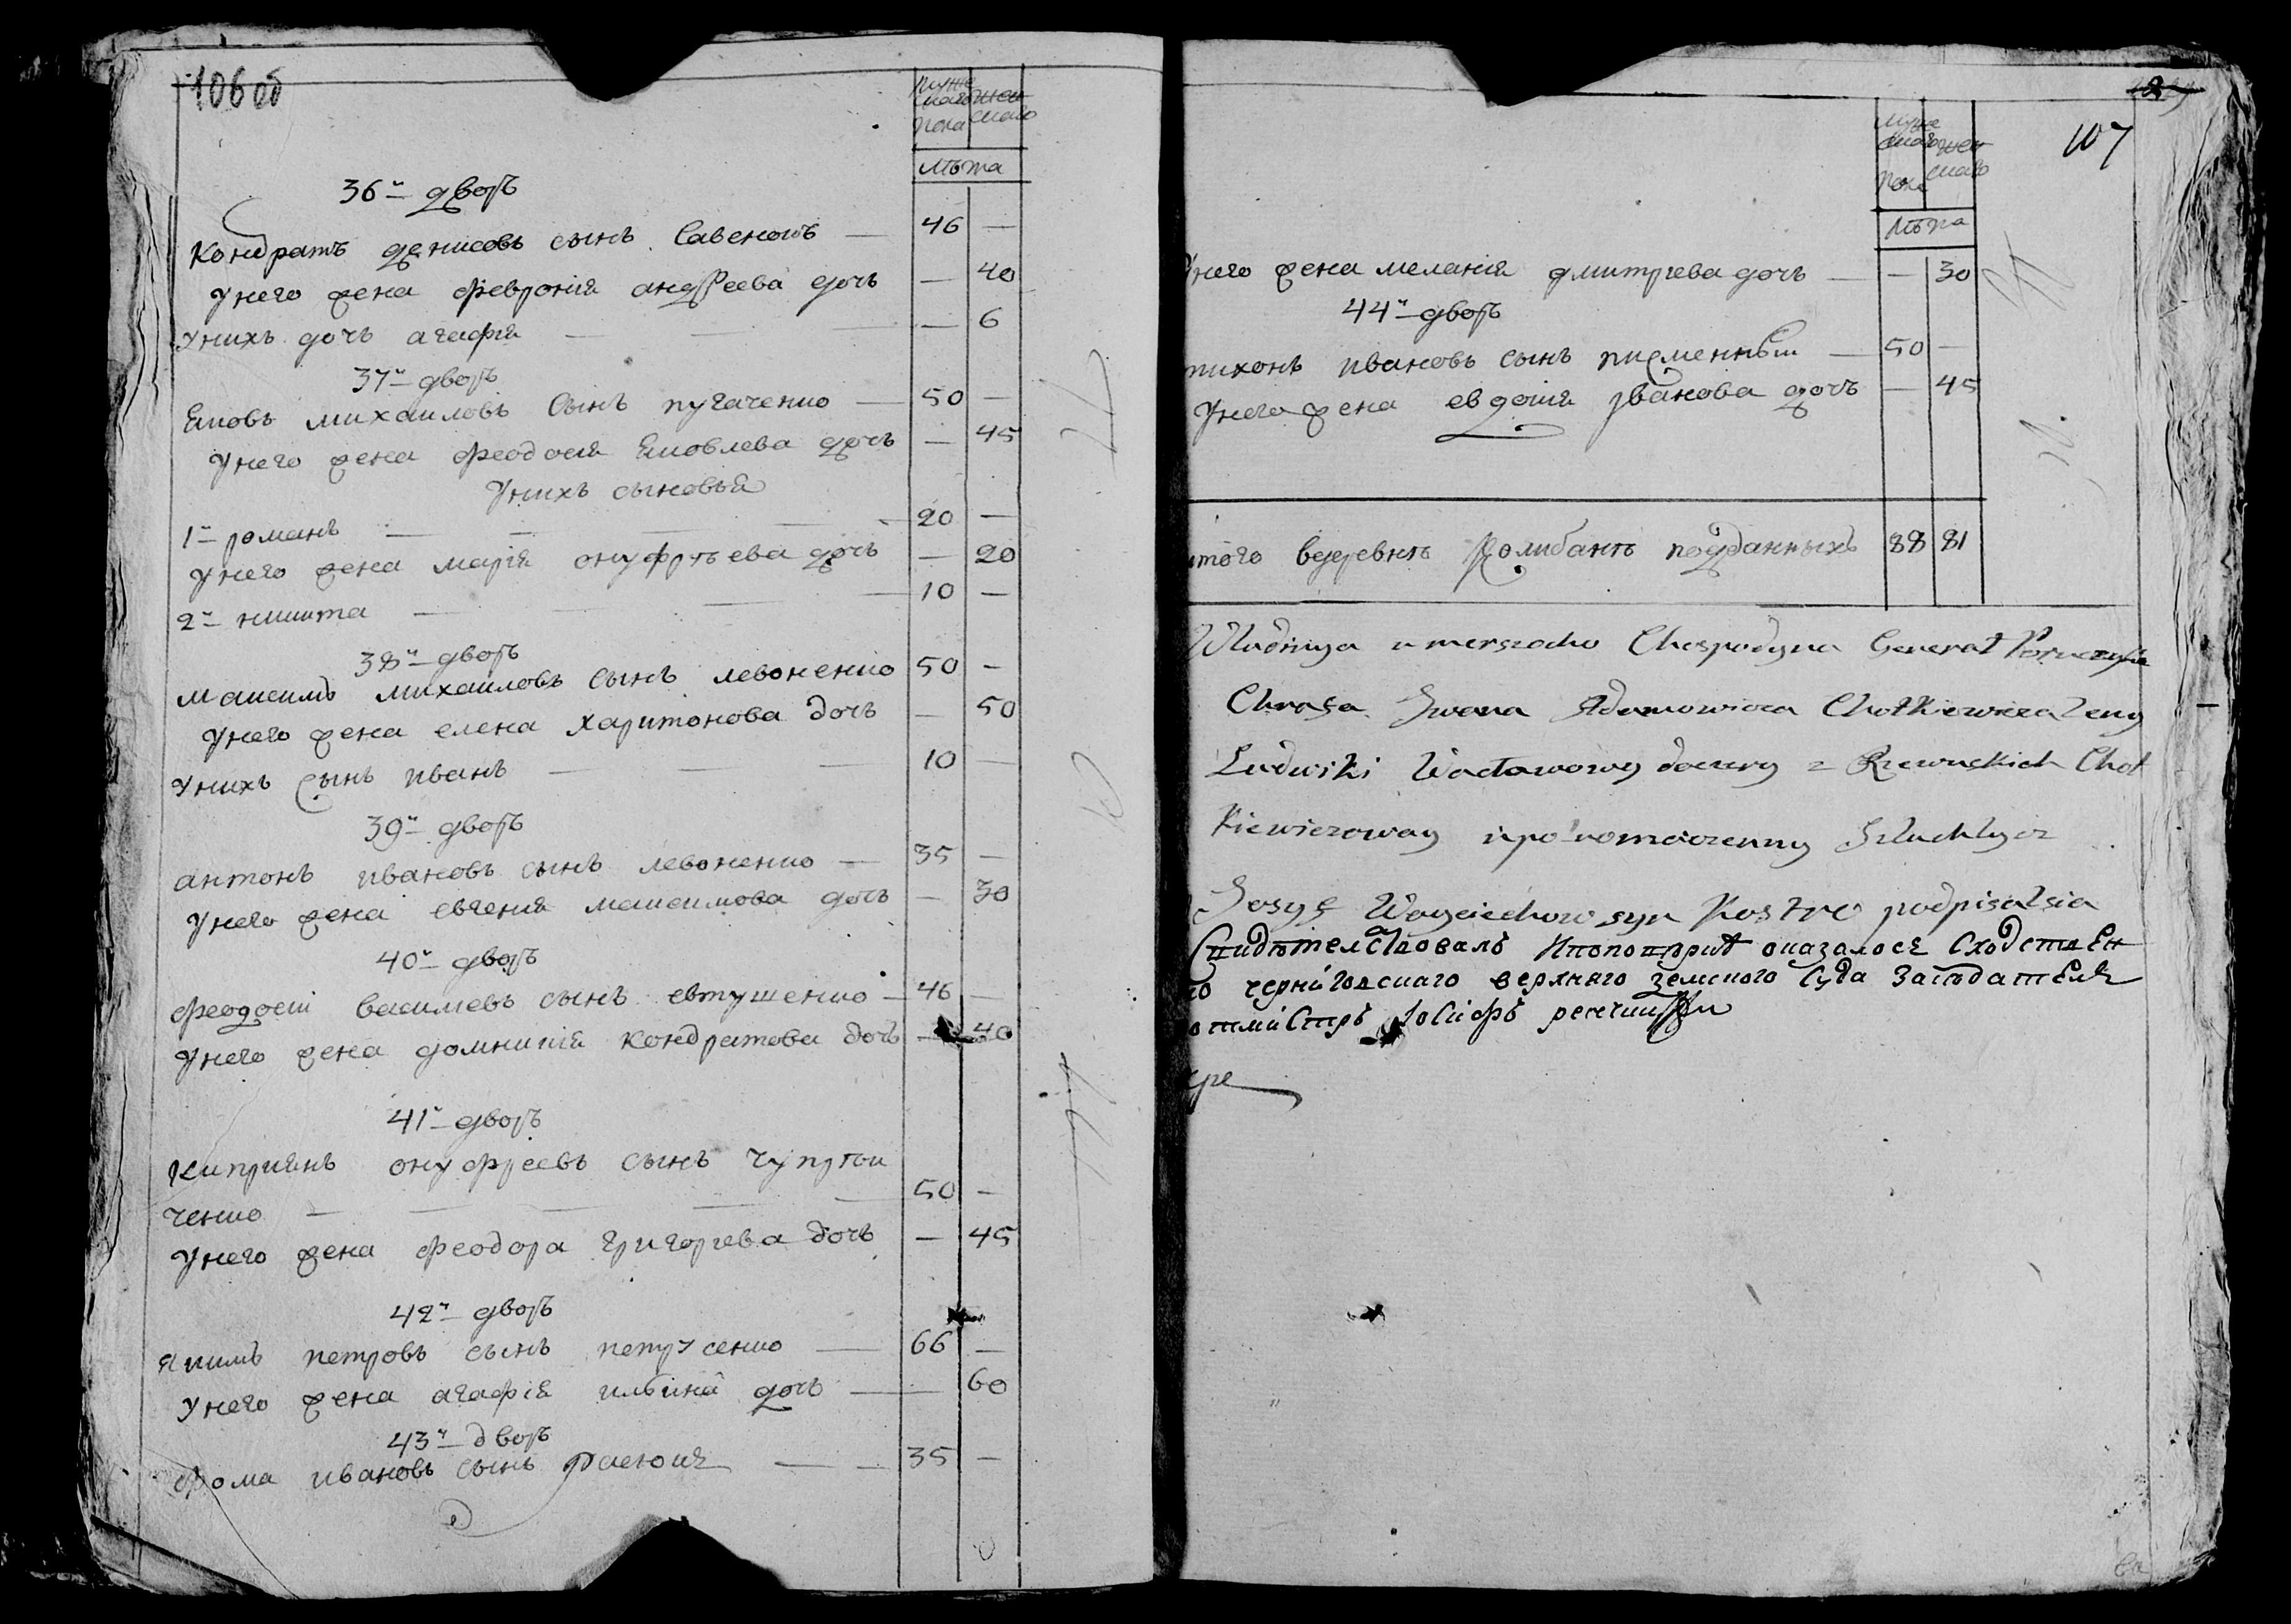 106 об
муже
скаго жен
пола скаго
лѣта
36й дворъ
Кондратъ денисовъ сынъ Савенокъ — 46 —
Унего жена феврония андреева дочь — 40
Унихъ дочь агафия — 6
37й дворъ
Яковъ михаиловъ сынъ пугаченко — 50 —
Унего жена феодосия Яковлева дочь — 45
Унихъ сыновья
1й романъ — 20 —
Унего жена мария онуфрѣева дочь — 20
2й никита — 10 —
38й дворъ
максимъ михаиловъ сынъ левоненко 50 —
Унего жена елена харитонова дочь — 50
Унихъ сынъ иванъ — 10 —
39й дворъ
антонъ ивановъ сынъ левоненко — 35 —
Унего жена евгения максимова дочь — 30
40й дворъ
феодосий василевъ сынъ евтушенко — 46 —
Унего жена домникия кондратова дочь — 40
41й дворъ
Киприянъ онуфреевъ сынъ чупрѣи
ченко — 50 —
Унего жена феодора григорева дочь — 45
42й дворъ
Якимъ петровъ сынъ петрусенко — 66 —
Унего жена агафия илина дочь — 60
43й дворъ
фома ивановъ сынъ — 35 —
107
муже
скаго жен
пола скаго
лѣта
Унего жена мелания дмитриева дочь — 30
44й дворъ
тихонъ ивановъ сынъ писменный — 50 —
Унего жена евдокия иванова дочь — 45
итого вдеревнѣ Колибанѣ подданныхъ 88 81
Wladniya umerszocho Chospodyna Generał Poruczyka
Chrafa Iwana Adamowicza Chotkiewicza Zeny
Ludwiki Wacławowy doczery z Rzewuskich Chot
kiewiczoway upołnomoczenny Szlachtycz
Josyf Woyciechow syn Kostro podpisałsia
Свидѣтелствовалъ Ипоповѣркѣ оказалося Сходствен
но черниговскаго верхняго земского Суда Засѣдателъ
отмистръ Иосифъ